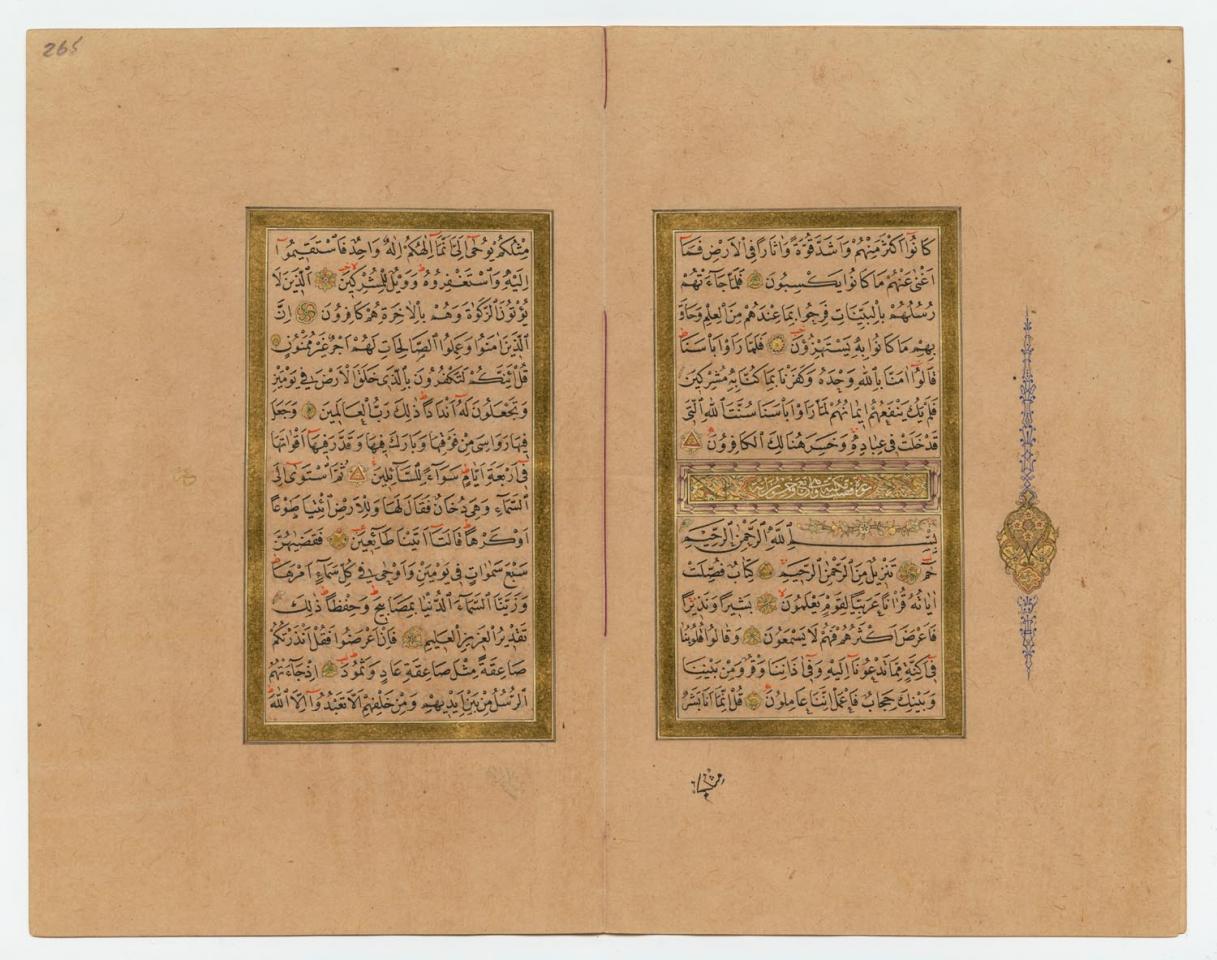 كَانُوا اَكْثَرَ مِنْهُمْ وَاَشَدَّ قُوَّةً وَاٰثَارًا فِى الْاَرْضِ فَمَا
اَغْنٰى عَنْهُمْ مَا كَانُوا يَكْسِبُونَ فَلَمَّا جَاءَتْهُمْ
رُسُلُهُمْ بِالْبَيِّنَاتِ فَرِحُوا بِمَا عِنْدَهُمْ مِنَ الْعِلْمِ وَحَاقَ
بِهِمْ مَا كَانُوا بِهٖ يَسْتَهْزِؤُنَ فَلَمَّا رَاَوْا بَاْسَنَا
قَالُوا اٰمَنَّا بِاللّٰهِ وَحْدَهُ وَكَفَرْنَا بِمَا كُنَّا بِهٖ مُشْرِكِينَ
فَلَمْ يَكُ يَنْفَعُهُمْ اِيمَانُهُمْ لَمَّا رَاَوْا بَاْسَنَا سُنَّتَ اللّٰهِ الَّتِى
قَدْ خَلَتْ فِى عِبَادِهٖ وَخَسِرَ هُنَالِكَ الْكَافِرُونَ
بِسْمِ اللّٰهِ الرَّحْمٰنِ الرَّحِيمِ
حٰمٓ تَنْزِيلٌ مِنَ الرَّحْمٰنِ الرَّحِيمِ كِتَابٌ فُصِّلَتْ
اٰيَاتُهُ قُرْاٰنًا عَرَبِيًّا لِقَوْمٍ يَعْلَمُونَ بَشِيرًا وَنَذِيرًا
فَاَعْرَضَ اَكْثَرُهُمْ فَهُمْ لَا يَسْمَعُونَ وَقَالُوا قُلُوبُنَا
فِى اَكِنَّةٍ مِمَّا تَدْعُونَا اِلَيْهِ وَفِى اٰذَانِنَا وَقْرٌ وَمِنْ بَيْنِنَا
وَبَيْنِكَ حِجَابٌ فَاعْمَلْ اِنَّنَا عَامِلُونَ قُلْ اِنَّمَا اَنَا بَشَرٌ
265
مِثْلُكُمْ يُوحٰى اِلَىَّ اَنَّمَا اِلٰهُكُمْ اِلٰهٌ وَاحِدٌ فَاسْتَقِيمُوا
اِلَيْهِ وَاسْتَغْفِرُوهُ وَوَيْلٌ لِلْمُشْرِكِينَ الَّذِينَ لَا
يُؤْتُونَ الزَّكٰوةَ وَهُمْ بِالْاٰخِرَةِ هُمْ كَافِرُونَ اِنَّ
الَّذِينَ اٰمَنُوا وَعَمِلُوا الصَّالِحَاتِ لَهُمْ اَجْرٌ غَيْرُ مَمْنُونٍ
قُلْ اَئِنَّكُمْ لَتَكْفُرُونَ بِالَّذِى خَلَقَ الْاَرْضَ فِى يَوْمَيْنِ
وَتَجْعَلُونَ لَهُ اَنْدَادًا ذٰلِكَ رَبُّ الْعَالَمِينَ وَجَعَلَ
فِيهَا رَوَاسِىَ مِنْ فَوْقِهَا وَبَارَكَ فِيهَا وَقَدَّرَ فِيهَا اَقْوَاتَهَا
فِى اَرْبَعَةِ اَيَّامٍ سَوَاءً لِلسَّائِلِينَ ثُمَّ اسْتَوٰى اِلَى
السَّمَاءِ وَهِىَ دُخَانٌ فَقَالَ لَهَا وَلِلْاَرْضِ ائْتِيَا طَوْعًا
اَوْ كَرْهًا قَالَتَا اَتَيْنَا طَائِعِينَ فَقَضٰيهُنَّ
سَبْعَ سَمٰوَاتٍ فِى يَوْمَيْنِ وَاَوْحٰى فِى كُلِّ سَمَاءٍ اَمْرَهَا
وَزَيَّنَّا السَّمَاءَ الدُّنْيَا بِمَصَابِيحَ وَحِفْظًا ذٰلِكَ
تَقْدِيرُ الْعَزِيزِ الْعَلِيمِ فَاِنْ اَعْرَضُوا فَقُلْ اَنْذَرْتُكُمْ
صَاعِقَةً مِثْلَ صَاعِقَةِ عَادٍ وَثَمُودَ اِذْ جَاءَتْهُمُ
الرُّسُلُ مِنْ بَيْنِ اَيْدِيهِمْ وَمِنْ خَلْفِهِمْ اَلَّا تَعْبُدُوا اِلَّا اللّٰهَ